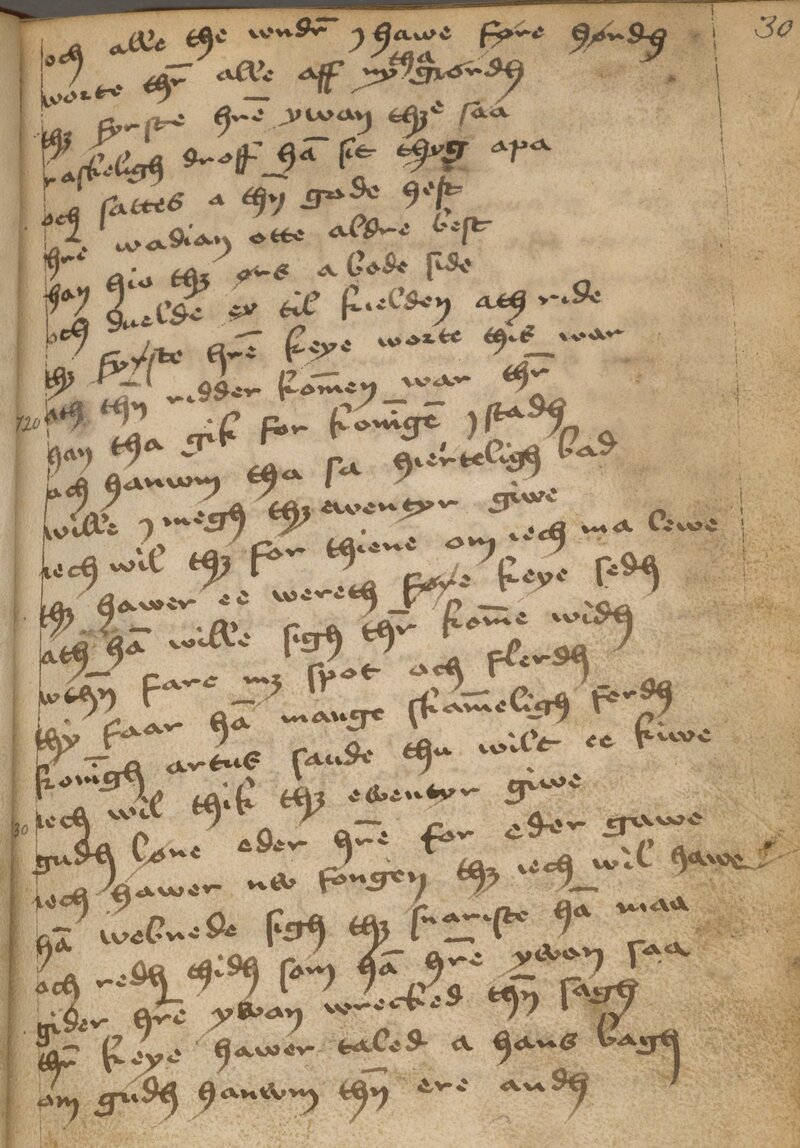 30
och alle the wndr̄ j hawe føre hørdh
worte thr̄ alle aff ny tha giordh
thꝫ fyrste hrē ywan thꝫe saa
raskeligh droff hā sit thyg apa
och sattes a thn̄ gode hest
hrē wadian otte aldre best
han hio thꝫ ørs a bode side
och duelde ey til kuelden ath ride
thꝫ fyrste hrē keye worte this war
ath thn̄ ridder kom̄en war thr̄
720
han tha gik for konīgē j stadh
och hanwm tha sa hierteligh bad
wille j megh thꝫ ewentyr giwe
iech wil thꝫ for thiene om iech ma lewe
thꝫ hawer ee wereth føre keye sedh
ath hā wille sigh thr̄ kom̄e widh
wthn̄ fare mꝫ spot och flerdh
thy faar hā mange skam̄eligh ferdh
konīgh artus saude thu wilt ee kiwe
iech wil thik thꝫ ewentyr giwe
30
gudh løne eder hrē for eder gawe
iech hawer nw fongen thꝫ iech wil hawe
hā webnede sigh thꝫ snariste hā maa
och redh thidh som hā hrē ywan saa
gider hrē ywan wrecked thn̄ sagh
thr̄ keye hawer taled a hans bagh
om gudh hanwm thn̄ ere andh